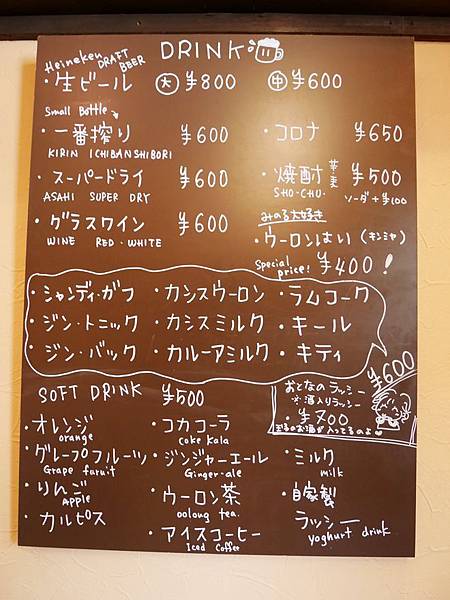 DRINK
Heineken DRAFT BEER
・生ビール 大 ¥800 中 ¥600
Small Bottle
・一番搾り ¥600 ・コロナ ¥650
KIRIN ICHIBANSHIBORI
・スーパードライ ¥600 ・焼酎 芋・麦 ¥500
ASAHI SUPER DRY SHO-CHO. ソーダ+¥100
・グラスワイン ¥600 みのる大好き
WINE RED・WHITE ・ウーロンはい(キンミヤ)
Special price! ¥400!
・シャンディ・ガフ ・カシスウーロン ・ラムコーク
・ジン・トニック ・カシスミルク ・キール
・ジン・バック ・カルーアミルク ・キティ
¥600
SOFT DRINK ¥500
おとなのラッシー
※酒入りラッシー
・¥700
・オレンジ ・コカコーラ
orange Coke Kala
・グレープフルーツ ・ジンジャーエール ・ミルク
Grape faruit Ginger-ale milk
・りんご ・ウーロン茶 ・自家製
Apple oolong tea. ラッシー
・カルピス ・アイスコーヒー yoghurt drink
Iced Coffee